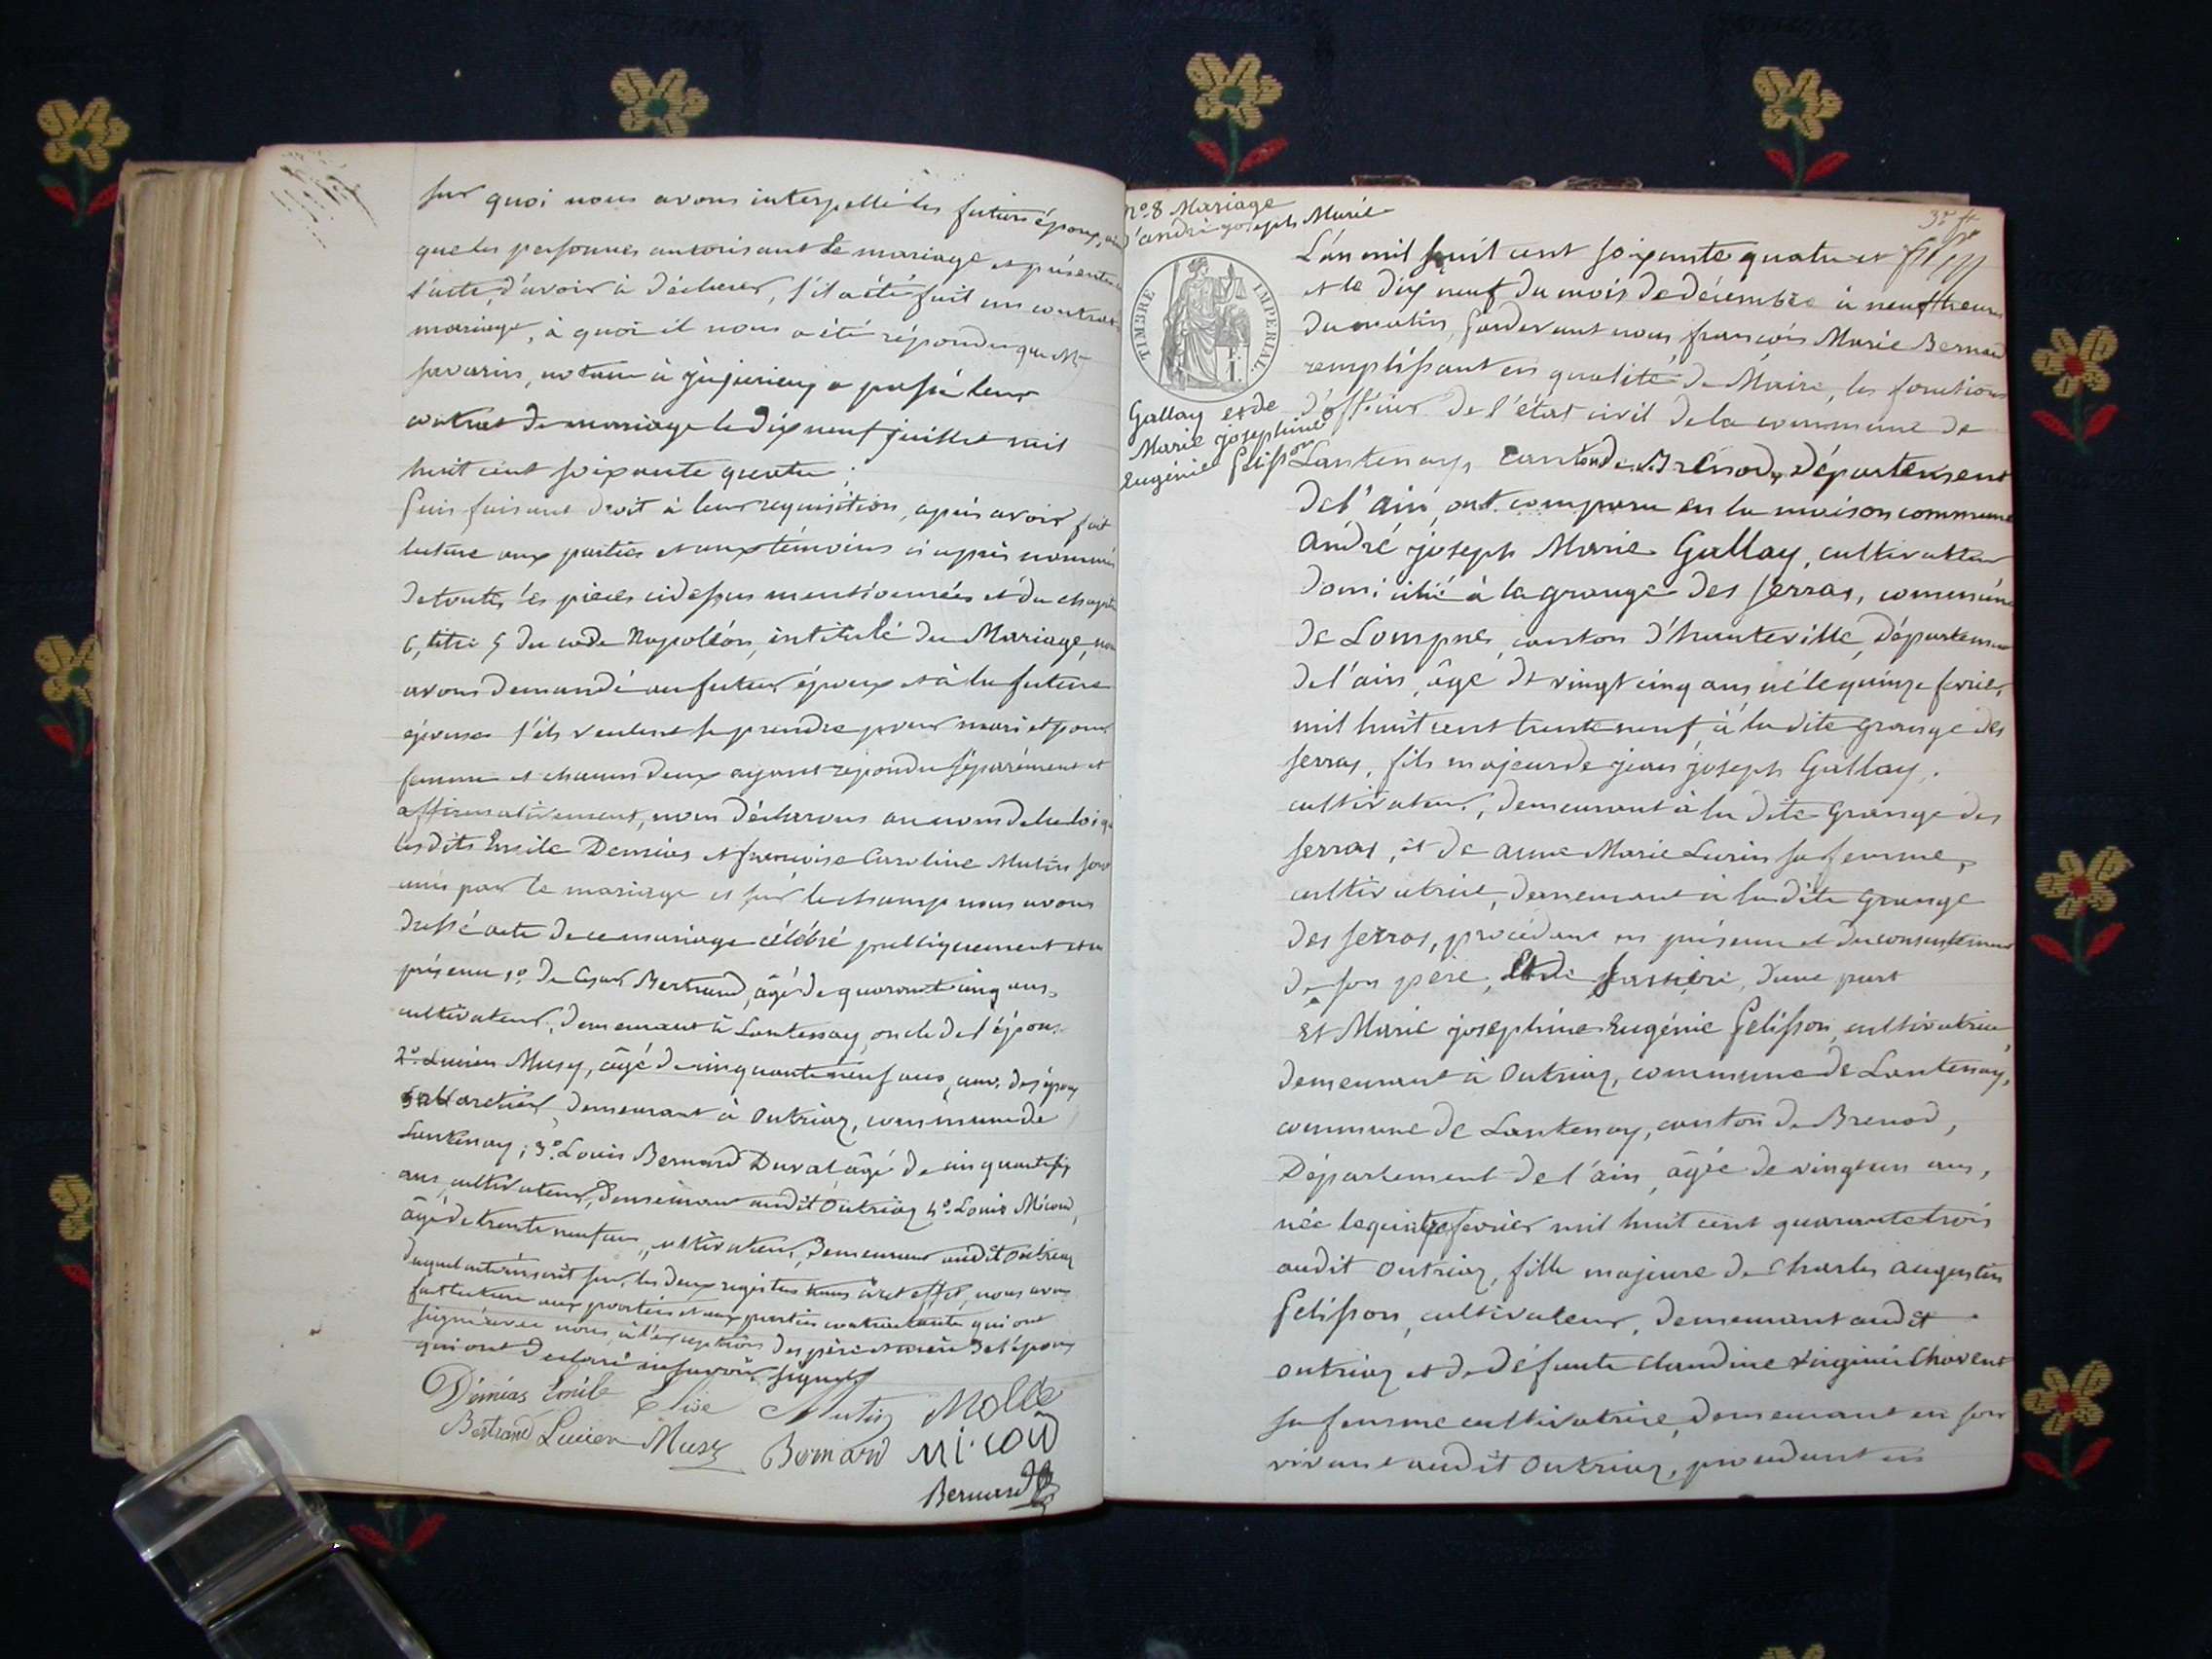 sur quoi nous avons interpellé les futurs époux,
que les personnes autorisant le mariage et présentes
l'acte, d'avoir à déclarer, s'il a été fait un contrat
mariage, à quoi il nous a été répondu que Me
savarin, notaire à jujurieux a passé leur
contrat de mariage le dix neuf juillet mil
huit cent soixante quatre;
Puis faisant droit à leur requisition, après avoir fait
lecture aux parties et aux témoins ci après nommés
de toutes les pièces ci dessus mentionnées et du chapitre
6, titre 5 du code Napoléon, intitulé du Mariage, nous
avons demandé au futur époux et à la future
épouse s'ils veulent se prendre pour mari et pour
femme et chacun deux ayant répondu séparément et
affirmativement, nous déclarons au nom de la loi que
les dits Emile Demias et françoise Caroline Mutin sont
unis par le mariage et sur le champ nous avons
dressé acte de ce mariage célébré publiquement et en
présence 1º. de César Bertrand, âgé de quarante cinq ans,
cultivateur, demeurant à Lantenay, oncle de l'époux
2º. Lucien Musy, âgé de cinquante neuf ans, des époux
demeurant à Outriaz, commune de
Lantenay; 3º. Louis Bernard Duval, âgé de cinquante six
ans, cultivateur, demeurant audit Outriaz 4º. Louis Micoud,
âgé de trente neuf ans, cultivateur, demeurant audit Outriaz
duquel acte inscrit sur les deux registres tenus à cet effet, nous avons
fait lecture aux parties et aux parties contractantes qui ont
signé avec nous, à l'exception des père et mère de l'époux
qui ont déclaré ne savoir signer
Démias Emile Elise Mutin Molle
Bertrand Lucien Musy Bernard Micoud
Bernard
nº. 8 Mariage
d'andré joseph Marie
TIMBRE IMPERIAL
Gallay et de
Marie josephine
Eugénie Pelisson
L'an mil huit cent soixante quatre et
et le dix neuf du mois de décembre à neuf heures
du matin, Pardevant nous françois Marie Bernard
remplissant en qualité de Maire, les fonctions
d'officier de l'état civil de la commune de
Lantenay, canton de Brénod, département
de l'ain, ont comparu en la maison commune
andré joseph Marie Gallay, cultivateur
domicilié à la grange des serras, commune
de Lompnes, canton d'hauteville, département
de l'ain, âgé de vingt cinq ans né le quinze fevrier
mil huit cent trente neuf, à la dite grange des
serras, fils majeur de jean joseph Gallay,
cultivateur, demeurant à la dite Grange des
serras, et de anne Marie Lurin sa femme,
cultivatrice, demeurant à la dite Grange
des serras, procédant en présence et du consentement
de son père, et de sa mère, d'une part
Et Marie josephine Eugénie Pelisson, cultivatrice,
demeurant à Outriaz, commune de Lantenay,
commune de Lantenay, canton de Brenod,
Département de l'ain, âgée de vingt un ans,
née le quinze fevrier mil huit cent quarante trois
audit Outriaz, fille majeure de Charles augustin
Pelisson, cultivateur, demeurant audit
Outriaz et de défunte claudine virginie Chavent
sa femme cultivatrice, demeurant en son
vivant audit Outriaz, procédant en